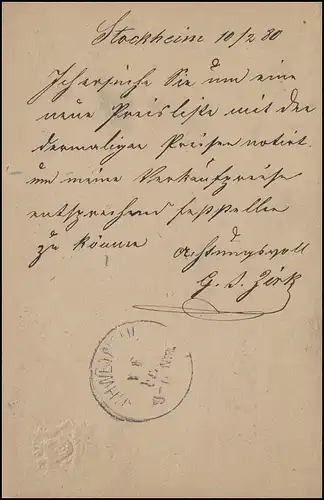 Stockheim 10/2 80
Ich ersuche Sie um eine
neue Preisliste mit den
dermaligen Preisen notirt.
um meine Verkaufspreise
entsprechend feststellen
zu können
Achtungsvoll
G. J. Zink